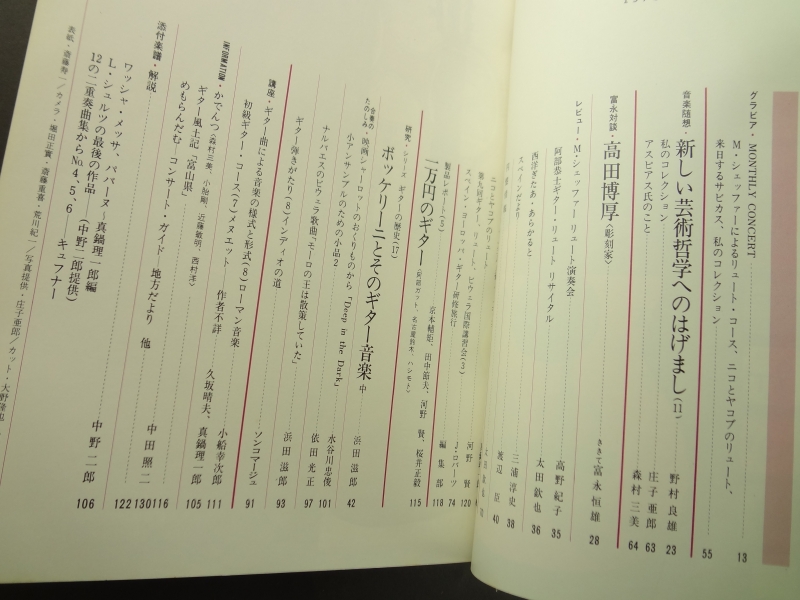 グラビア・MONTHLY CONCERT 13
M・シェッファーによるリュート・コース、ニコとヤコブのリュート、
来日するサビカス、私のコレクション 55
音楽随想・新しい芸術哲学へのはげまし(11) 野村良雄 23
私のコレクション 庄子亜郎 63
アスピアス氏のこと 森村三美 64
富永対談・高田博厚〈彫刻家〉 ききて富永恒雄 28
レビュー・M・シェッファー リュート演奏会 高野紀子 35
阿部恭士ギター・リュート リサイタル
西洋ぎたあ・あらかると 太田欽也 36
スペインだより 三浦淳史 38
渡辺臣 40
ニコとヤコブのリュート
第九回ギター、リュート、ビウェラ国際講習会(3)
スペイン・ヨーロッパ・ギター研修旅行 河野賢 120
J・ロバーツ 74
製品レポート(5) 編集部 118
二万円のギター 京本輔矩、田中節夫、河野賢、桜井正毅 115
研究・シリーズ ギターの歴史(17)
ボッケリーニとそのギター音楽 中 浜田滋郎 42
合奏のたのしみ・映画シャーロットのおくりものから「Deep in the Dark」
小アンサンブルのための小品2 水谷川忠俊 101
ナルバエスのビウェラ歌曲「モーロの王は散策していた」 依田光正 97
ギター弾きがたり(8)インディオの道 浜田滋郎 93
講座・ギター曲による音楽の様式と形式(8)ローマン音楽 ソンコマージュ 91
初級ギター・コース(7)メヌエット 作者不詳 小船幸次郎 111
INFORMATION・かでんつ〈森村三美、小胎剛、近藤敏明、西村洋〉
ギター風土記「富山県」 久坂晴夫、真鍋理一郎 105
めもらんだむ コンサート・ガイド 地方だより 他 130 116
添付楽譜・解説 中田照二 122
ワッシャ・メッサ、パバーヌ〜真鍋理一郎編
L・シュルツの最後の作品
12の二重奏曲集からNo.4、5、6 キュフナー
(中野二郎提供) 中野二郎 106
表紙・斎藤寿一/カメラ・堀田正實・斎藤重喜・荒川紀一/写真提供・庄子亜郎/カット・大野隆也